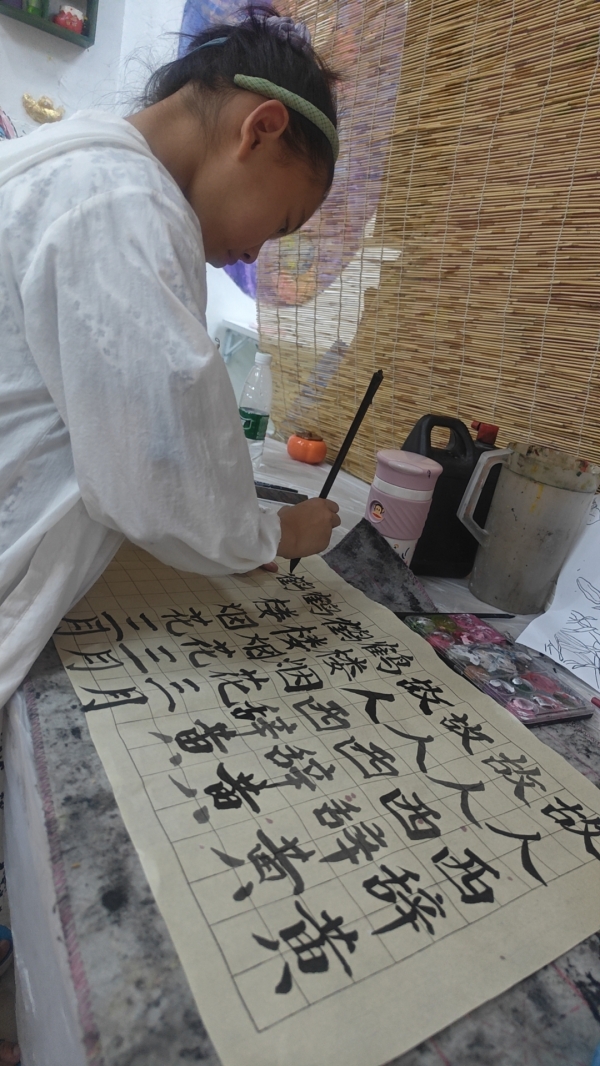 故人西辞黄
故人西辞黄
故人西辞黄
故人西辞黄
鹤楼烟花三月
鹤楼烟花三月
鹤楼烟花三月
鹤